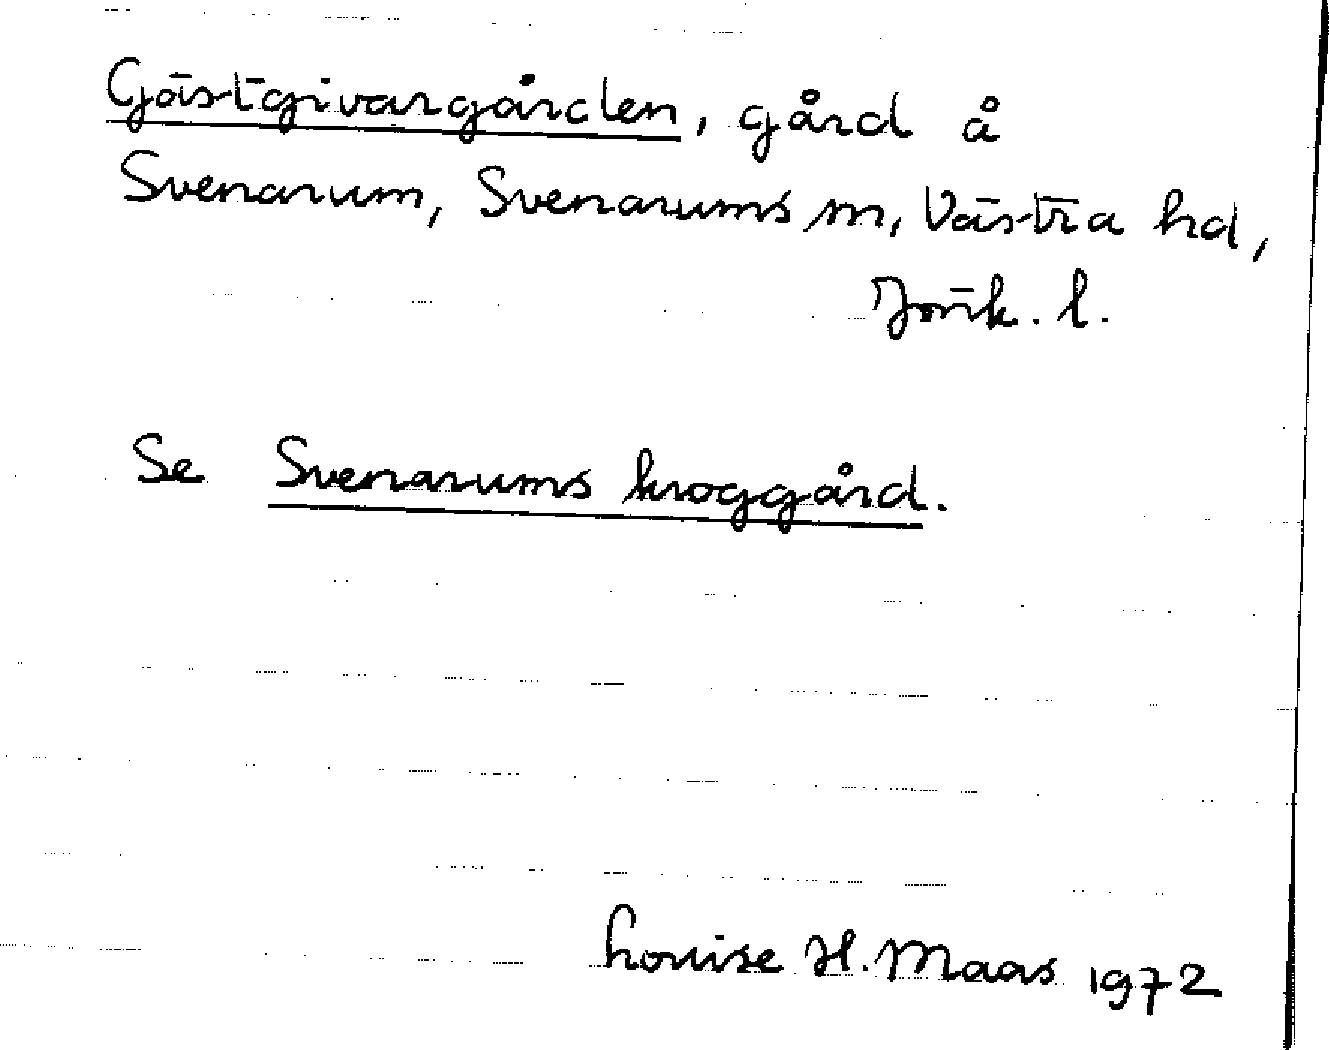 Gästgivargården, gård å
Svenarum, Svenarums sn, Västra hd,
Jönk. l.
Se Svenarums kroggård.
Louise H. Maas 1972